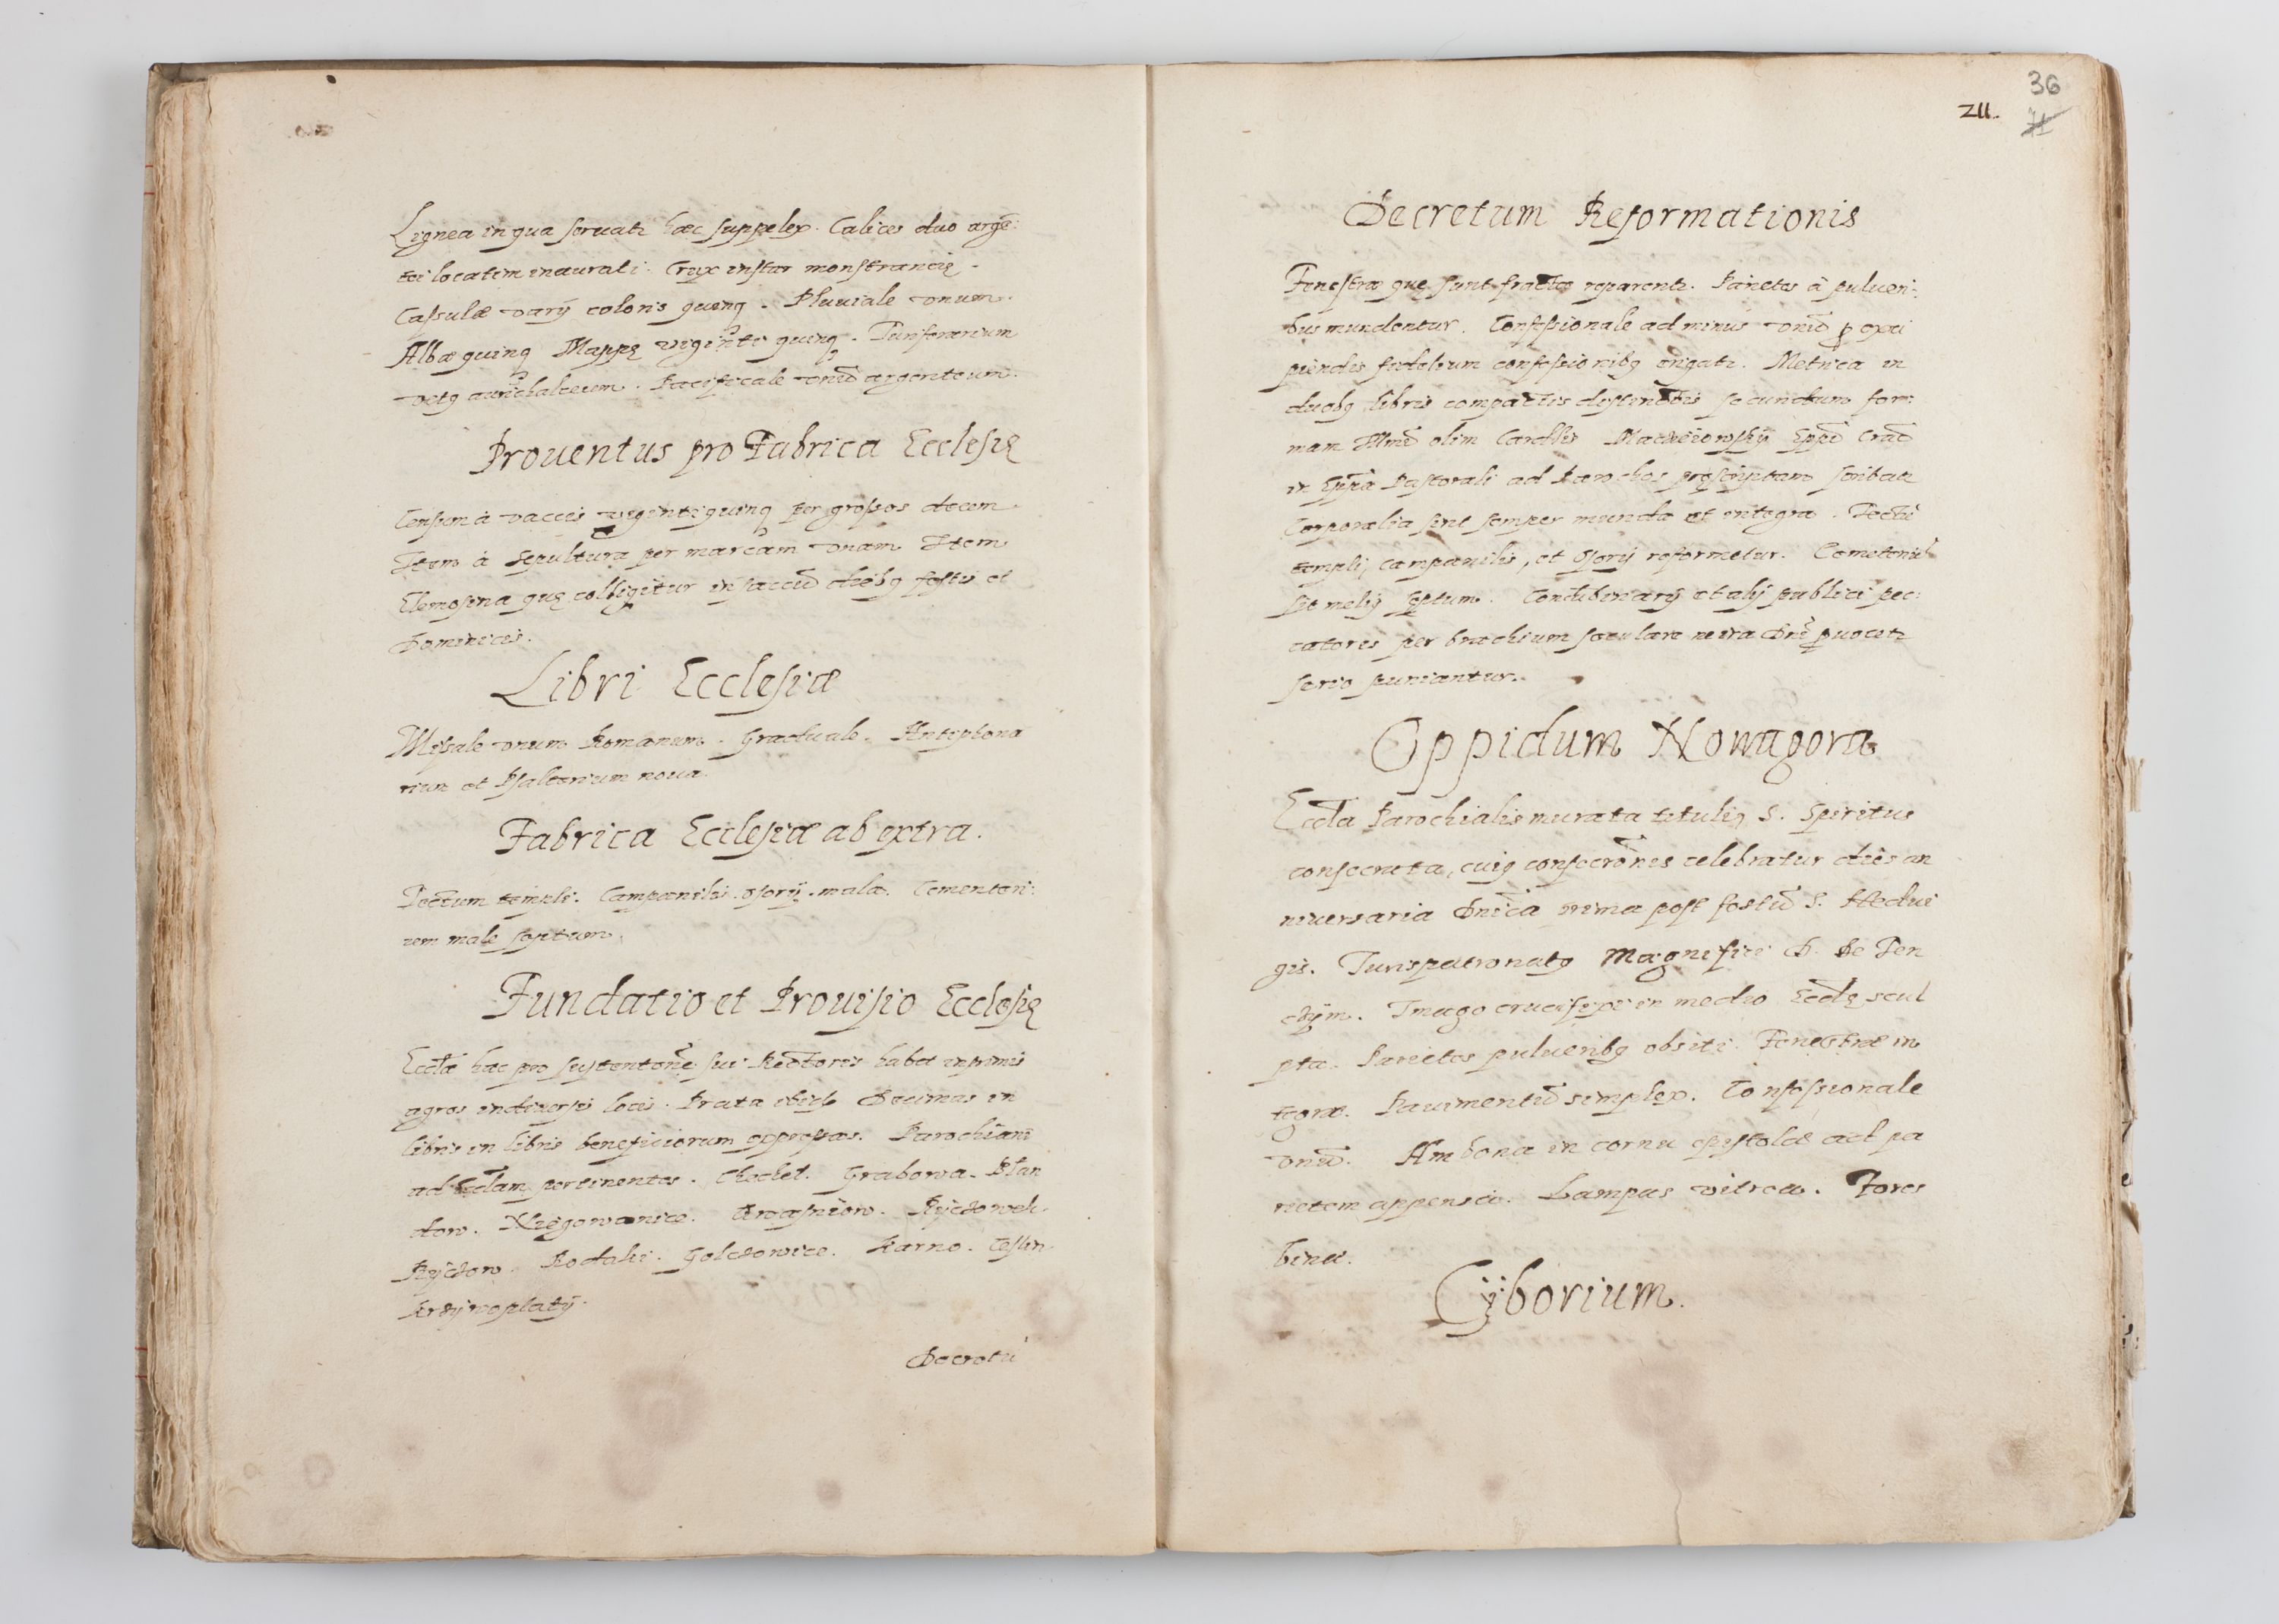 Lignea in qua seruatr haec suppelex. Calices duo argē:
tei locatim inaurati. Crux instar monstrancię.
Cassulæ varÿ coloris quinq. Pluuiale vnum.
Albæ quinq Mappę viginti quinq. Turiferarium
vetq aurichalceum. Pacificale vnū argenteum.
Prouentus pro Fabrica Ecclesię
Censum à vaccis viginti quinq per grossos decem
Item à sepultura per marcam vnam Item
Elemosina quę colligitur in saccū diebq festis et
Dominicis.
Libri Ecclesiæ
Missale vnum Romanum. Graduale. Antiphona
rium et Psalterium noua.
Fabrica Ecclesiæ ab extra.
Tectum templi. Campanilis. osorÿ. mala. Cemeteri:
um male septum.
Fundatio et Prouisio Ecclesię
Eccła haec pro sustentone sui Rectoris habet inprimis
agros in diuersis locis. Prata Decimas in
libris in libris beneficiorum expressas. Parochiani
ad Eccłam pertinentes. Chechel. Grabowa. Blan
dow. Niegowanice. Kwasniow. Ryczowek.
Ryczow. Rodaki. Golczowice. Karno. Ceslin.
Krzÿwoplatÿ.
Decretū
36
711.
71
Decretum Reformationis
Fenestræ quę sunt fractæ reparentr. Parietes à pulueri:
bus mundentur. Confessionale ad minus vnū p exci
piendis fidelium confessionibq erigatr. Metrica in
duobq libris compactis distinctis secundum for:
mam Illmī olim Cardlis Macieiowskÿ Epī Crac
in Eppla Pastorali ad Parochos pręscriptam scribatr
Corporalia sint semper munda et integra. Tectū
templi, campanilis, et Osorÿ reformetur. Cemeteriū
sit meliq septum. Concubinarÿ et alÿ publici pec:
catores per brachium seculare
serio puniantur.
Oppidum Nowagora
Eccła Parochialis murata tituliq S. Spiritus
consecrata, cuiq consecrōnis celebratur dies an
niuersaria Dnica prima post festū S. Hedui
gis. Iurispatronatq Magnifici D. De Ten
czÿn. Imago crucifixi in medio Ecclę scul
pta. Parietes puluenibq obsiti. Fenestræ in
tegræ. Pauimentū simplex. Confessionale
vnū. Ambona in cornu epistolæ ad pa
rietem appensa. Lampas vitrea. Fores
binæ.
Cÿborium.